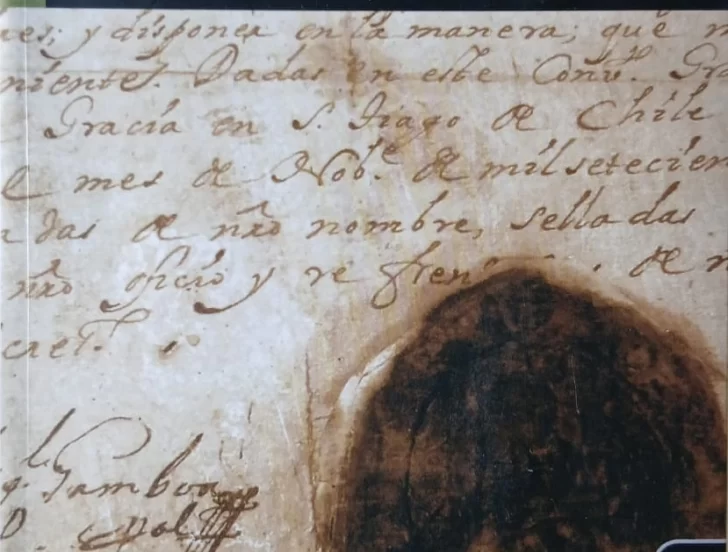 aes; y dispones en la manera; que
nientes. Dadas en este Conv.to Gra
Gracia en S. Tiago de Chile
el mes de Nob.e de mil setecien
adas de nro nombre, selladas
nro oficio y refren de
cret.
Gamboa